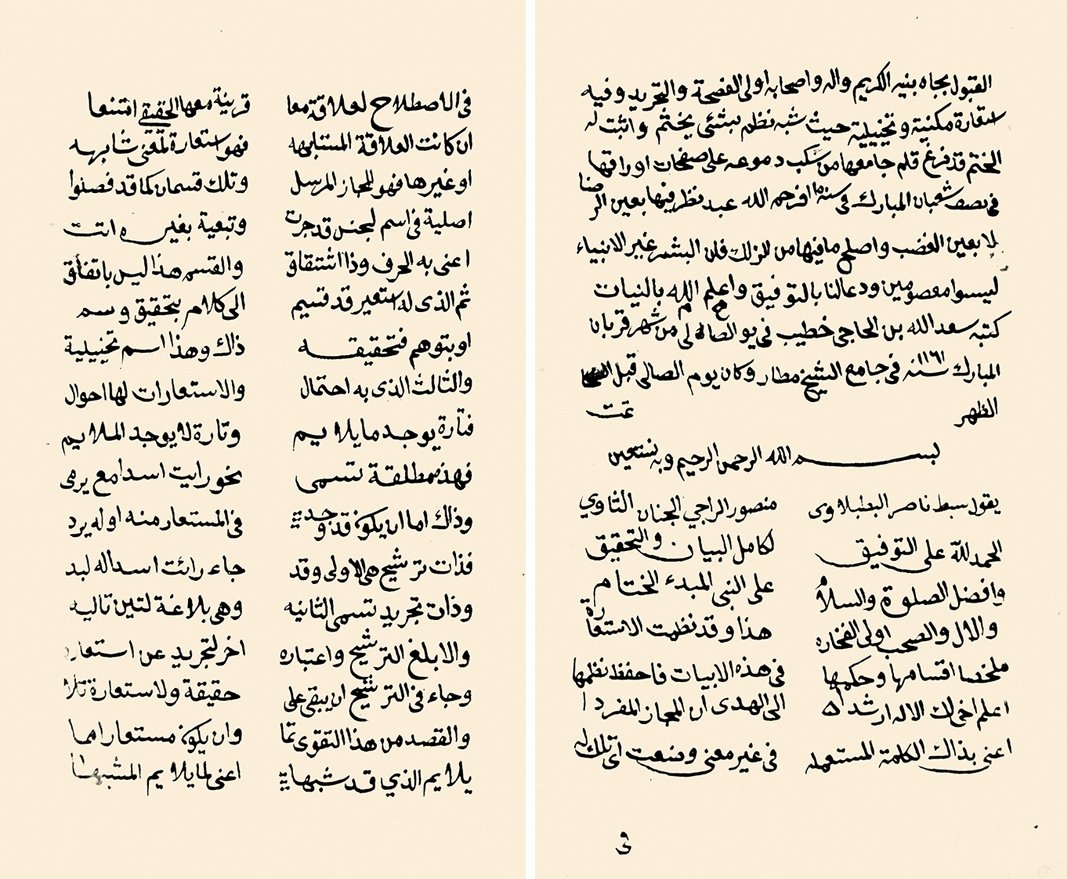 القبول بجاه نبيه الكريم واله واصحابه اولى الفصحة والتجريد وفيه
استعارة مكنية وتخييلية حيث شبه نظمه بشئ يختم واثبت له
الختم قد فرغ قلم جامعها من سكب دموعه على صفحات اوراقها
فى نصف شعبان المبارك فى سنة فرحم الله عبد نظر فيها بعين الرضا
لا بعين الغضب واصلح ما فيها من الزلك فان البشر غير الانبياء
ليسوا معصومين ودعالنا بالتوفيق واعلم الله بالنيات
كتبه سعد الله بن الحاجى خطيب فى يو الصالى من شهر قربان
المبارك ١١٦١ سنه فى جامع الشيخ مطار وكان يوم الصالى قبل
الظهر تمت
بسم الله الرحمن الرحيم وبه نستعين
يقول سبط ناصر البطبلاوى منصور الراجي الجنان الثاوي
الحمد لله على التوفيق لكامل البيان والتحقيق
وافضل الصلوة والسلام على النبى المبدء الختام
والال والصحب اولى الفخاره هذا وقد نظمت الاستعارة
ملخصا اقسامها وحكمها فى هذه الابيات فاحفظ نظمها
اعلم اخى لك الاله ارشدا الى الهدى ان المجاز المفردا
اعنى بذاك الكلمة المستعمله فى غير معنى وضعت اى تلك له
فى
فى الاصطلاح لعلاقة معا قرينة معها الحقيقي امتنعا
ان كانت العلاقة المشابهه فهو استعارة لمعنى شابهه
او غيرها فهو المجاز المرسل وتلك قسمان كما قد فصلوا
اصلية فى اسم لجنس قد جرت وتبعية بغيره اتت
اعنى به الحرف وذا اشتقاق والقسم هذا ليس باتفاق
ثم الذى له استعير قد قسيم الى كلام بتحقيق وسم
او بتوهم فتحقيقه ذاك وهذا اسم تخييلية
والثالث الذى به احتمال والاستعارات لها احوال
فتارة يوجد ما يلايم وتارة لا يوجد الملايم
فهذه مطلقة تسمى نحو رايت اسدا مع يرمى
وذاك اما ان يكون قد وجد فى المستعار منه او له يرد
فذات ترشيح هى الاولى وقد جاء رائت اسدا له لبد
وذات تجريد تسمى الثانيه وهى بلاغة لتين تاليه
والابلغ الترشيح واعتباره اخر لتجريد عن استعاره
وجاء فى الترشيح ان يبقى على حقيقة ولاستعارة تلا
والقصد من هذا التقوى تما وان يكون مستعارا مما
يلايم الذي قد شبها به اعنى لما يلايم المشبها